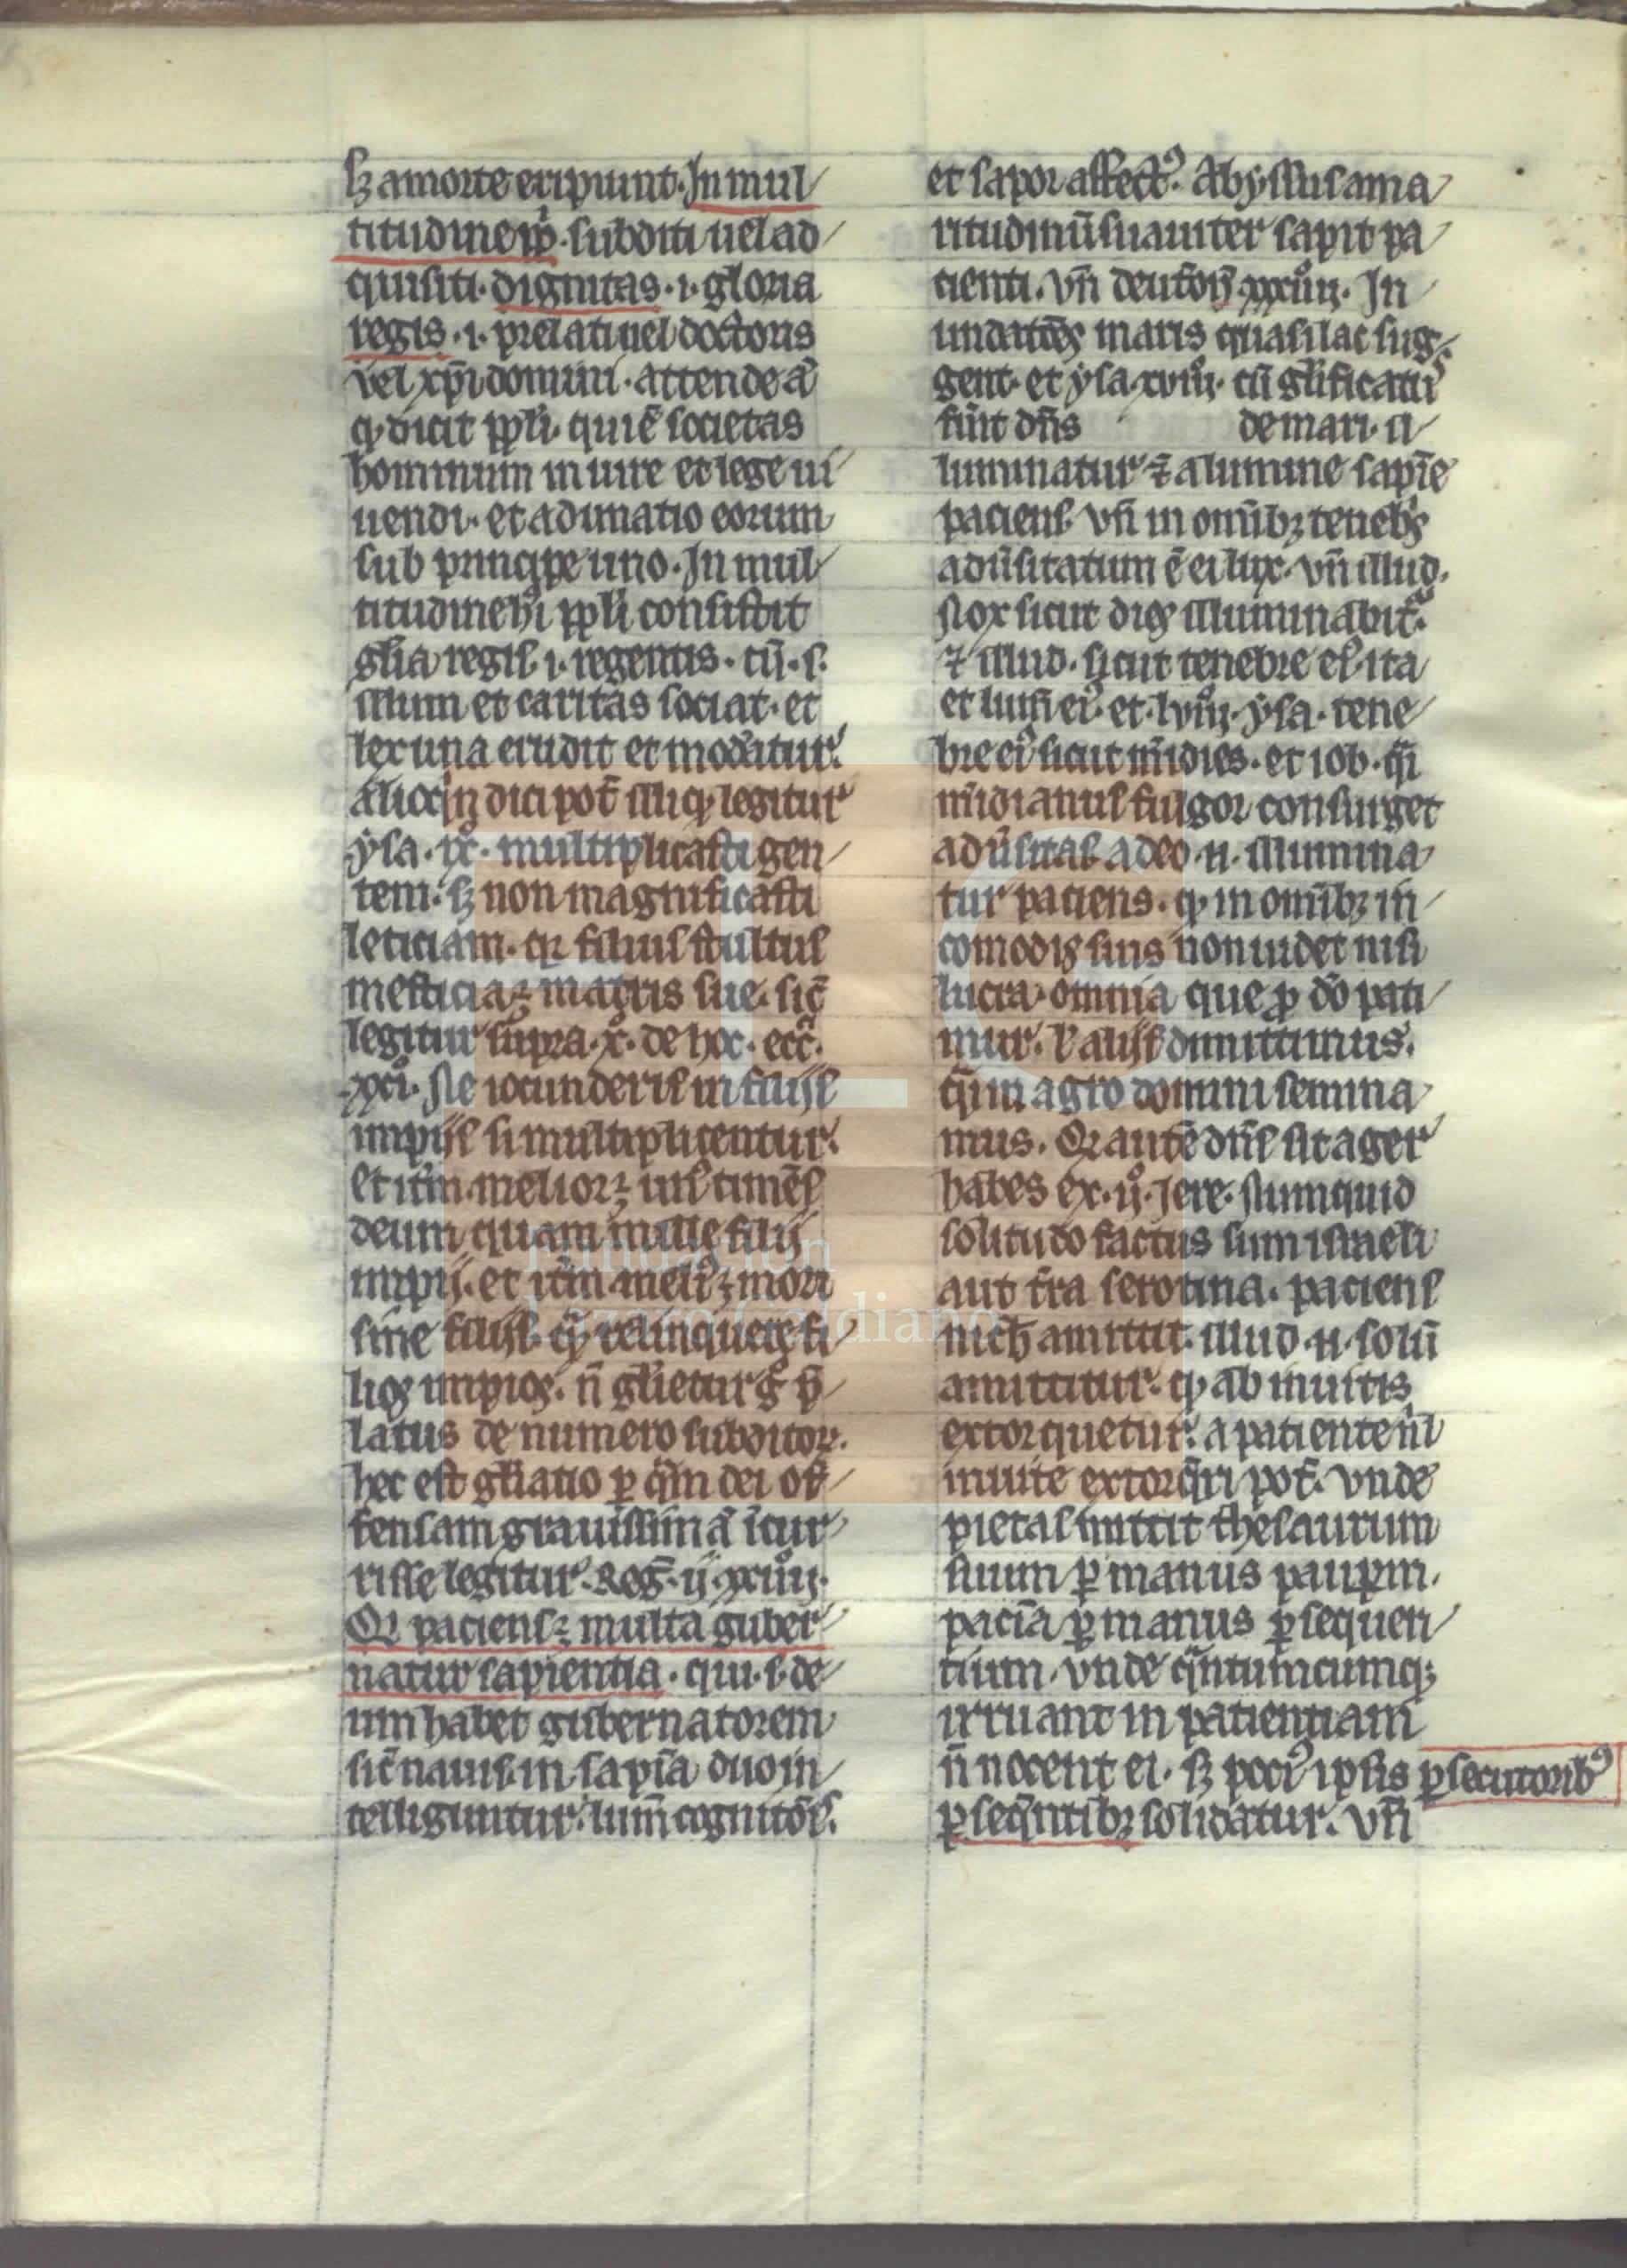 sꝫ a morte eripiunt. In mul
titudine ip̄. subditi uel ad
quisiti. dignitas .i. gloria
regis .i. prelati uel doctoris
vel xp̄i domini. attende
dicit ppl̓i. qui ē societas
hominum in iure et lege ui
uendi. et adunatio eorum
sub principe uno. In mul
titudine ppl̓i consistit
gl̄ia regis .i. regentis. cū .s.
illum et caritas sociat. et
lex una erudit et modatur.
dici pot̄ illi ꝙ legitur
ysa. ix. multiplicasti gen
tem. sꝫ non magnificasti
leticiam. qꝛ filius stultus
mesticia ⁊ matris sue. sic̄
legitur supra .x. de hoc. ecc̄i.
xxi. Ne iocunderis in filijs
impijs si multiplicentur.
et it̄m. melior ⁊ un̓ timēs
deum quam mille filij
impij. et it̄m. meli̓ ⁊ mori
sine filijs. relinquere fi
lios impios. n̄ gl̄ietur g̊ p̄
latus de numero subditoꝝ.
hec est gl̄iatio ꝑ qm̄ dei of
fensam grauissimā ī cur
risse legitur. Reg̅. ij. xxiiij.
Qꝛ paciens ⁊ multa guber
natur sapientia. qui .s. de
um habet gubernatorem
sic̄ nauis. in sapīa duo in
telliguntur. lum̄ cognitōis.
et sapor affect̓. Abyssus ama
ritudinū suauiter sapit pa
cienti. vn̄ deut̄on̄. xxxiij. In
undatōes maris quasi lac sug
gent. et ysa. xviiij. cū gl̄ificatu̓
fūit dn̄s de mari. il
luminatur ⁊ a lumine sapīe
paciens. vn̄ in omībꝫ teneb̓s
adūsitatum ē ei lux. vn̄ illud.
Nox sicut dies illuminabit̓.
⁊ illud. sicut tenebre ei̓. ita
et lum̄ ei̓. et. lviij. ysa. tene
bre ei̓ sicut m̄idies. et iob. q̄i
m̄idianus fulgor consurget
ad ūsitas adeo .n. illumina
tur paciens. ꝙ in omībꝫ in
comodis suis non uidet nisi
lucra. omnia que ꝓ dō pati
mur. dimittimus.
q̄i in agro domini semina
mus. Qꝛ autē dn̄s sit ager
habes ex. ij. Jere. Numquid
solitudo factus sum israeli
aut t̄ra serotina. paciens
nich̄ amittit. illud .n. solū
amittitur. ꝙ ab inuitis
extorquetur. a patiente n̄l
inuite extorq̄ri pot̄. vnde
pietas mittit thesaurum
suum ꝑ manus pauꝑm.
pacīa ꝑ manus ꝑsequen
tium. vnde q̄ntumcumqꝫ
irruant in patientiam
n̄ nocent ei. sꝫ poci̓ ipsis ꝑsecutorib̓
ꝑseq̄ntibꝫ solidatur. vn̄
Fundación
Lázaro Galdiano